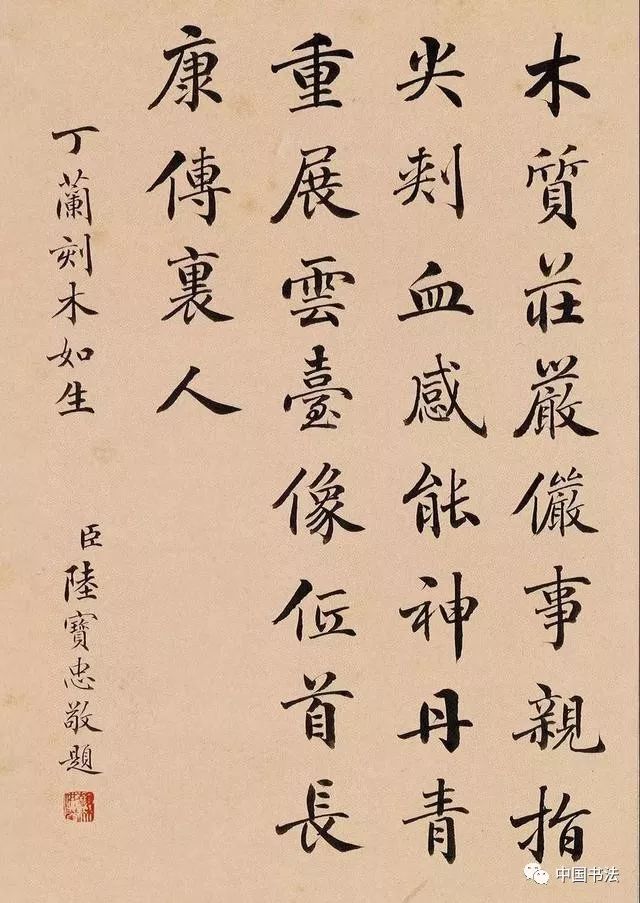 木質莊嚴儼事親指
尖刾血感能神丹青
重展雲臺像低首長
康傳裏人
丁蘭刻木如生
臣陸寶忠敬題
中国书法